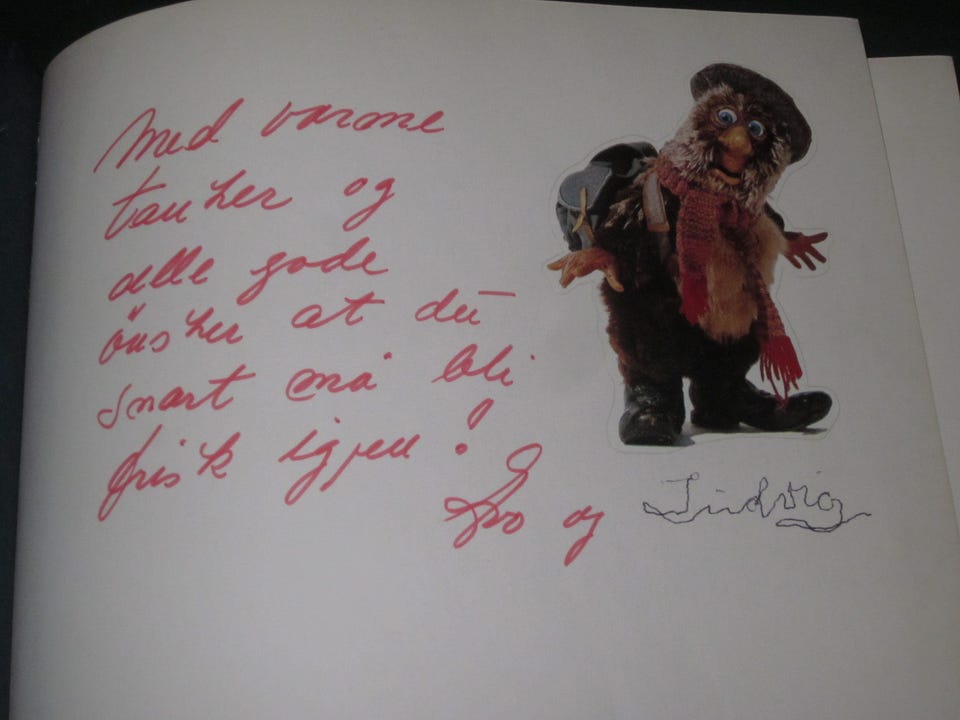 Med varme
tanker og
alle gode
önsker at du
snart må bli
frisk igjen!
Ivo og Ludvig